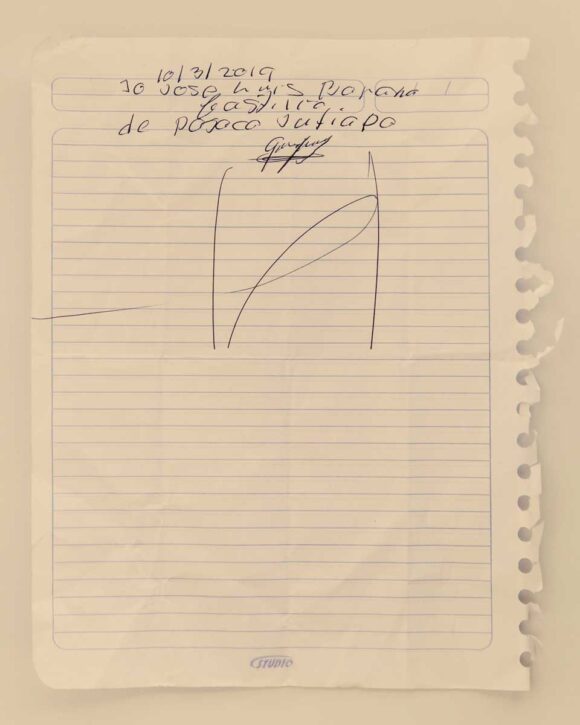 10/3/2019
Jo Jose Luis Barana
Castilla.
de pasaco Jutiapa
STUDIO